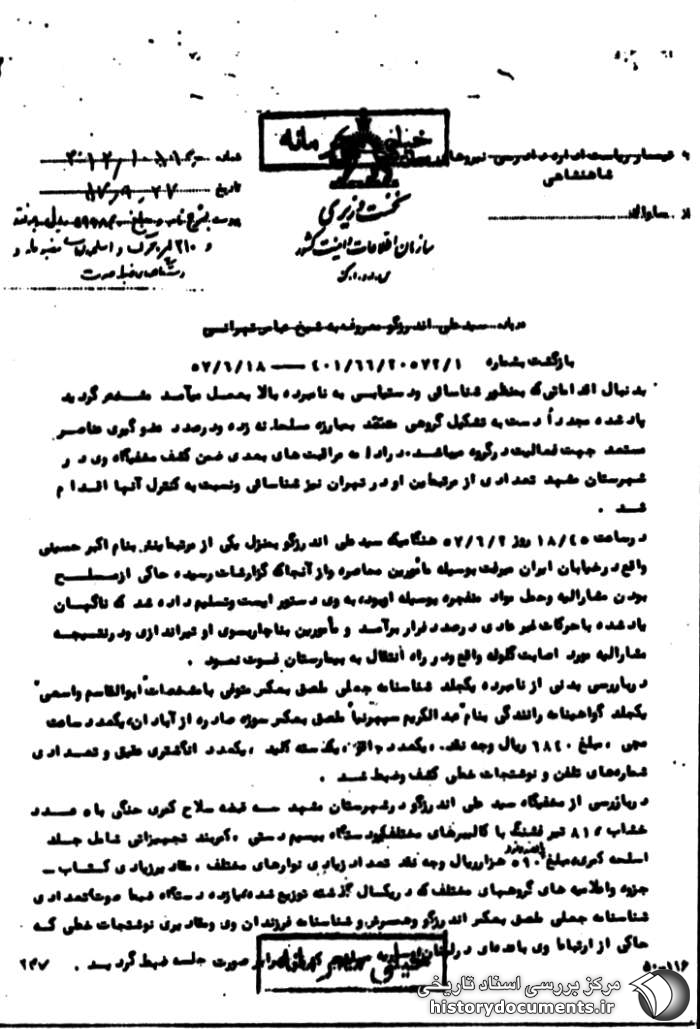 خیلی محرمانه
به تیمسار ریاست اداره دادرسی نیروهای
شاهنشاهی
از ساواک
نخست وزیری
سازمان اطلاعات و امنیت کشور
شماره
تاریخ
درباره سید علی اندرزگو معروف به شیخ عباس تهرانی
بازگشت بشماره ۴۰۱/۶۶/۲۰۵۷۲/۱ ـــ ۵۷/۶/۱۸
بدنبال اقداماتی که بمنظور شناسائی و دستیابی به نامبرده بالا بعمل میآمد مشخص گردید
یاد شده مجدداً دست به تشکیل گروهی معتقد بمبارزه مسلحانه زده و درصدد عضوگیری عناصر
مستعد جهت فعالیت در گروه میباشد. در ادامه مراقبت های بعدی ضمن کشف مخفیگاه وی در
شهرستان مشهد تعدادی از مرتبطین او در تهران نیز شناسائی و نسبت به کنترل آنها اقدام
شد .
در ساعت ۱۸/۴۵ روز ۵۷/۶/۲ هنگامیکه سید علی اندرزگو بمنزل یکی از مرتبطینش بنام اکبر حسینی
واقع در خیابان ایران میرفت بوسیله مأمورین محاصره و از آنجا که گزارشات رسیده حاکی از مسلح
بودن مشارالیه و حمل مواد منفجره بوسیله او بود، به وی دستور ایست و تسلیم داده شد که ناگهان
یاد شده با حرکات غیر عادی درصدد فرار برآمد و مأمورین بناچار بسوی او تیراندازی و در نتیجه
مشارالیه مورد اصابت گلوله واقع و در راه انتقال به بیمارستان فوت نمود .
در بازرسی بدنی از نامبرده یکجلد شناسنامه جعلی ملصق بعکس متوفی با مشخصات "ابوالقاسم واسعی"
یکجلد گواهینامه رانندگی بنام "عبدالکریم سپهرنیا" ملصق بعکس سوژه صادره از آبادان، یکعدد ساعت
مچی ، مبلغ ۶۸۲۰ ریال وجه نقد، ، یکدسته کلید ، یکعدد انگشتری عقیق و تعدادی
شماره‌های تلفن و نوشتجات خطی کشف و ضبط شد .
در بازرسی از مخفیگاه سید علی اندرزگو در شهرستان مشهد سه قبضه سلاح کمری جنگی با ۵ عدد
خشاب ، ۸۱ تیر فشنگ با کالیبرهای مختلف دستگاه بیسیم دستی ، کمربند تجهیزاتی شامل جلد
اسلحه کمری، مبلغ ۵۱۰ هزار ریال وجه نقد تعداد زیادی نوارهای مختلف ، مقادیر زیادی کتاب ـ
جزوه و اعلامیه های گروههای مختلف که در یکسال گذشته توزیع شده، یازده دستگاه ضبط صوت، تعدادی
شناسنامه جعلی ملصق بعکس اندرزگو و همسرش و شناسنامه فرزندان وی و مقادیری نوشتجات خطی که
حاکی از ارتباط وی با صورت جلسه ضبط گردید .
خیلی محرمانه
۲۴۷
۵۰-۱۱۶
مرکز بررسی اسناد تاریخی
historydocuments.ir